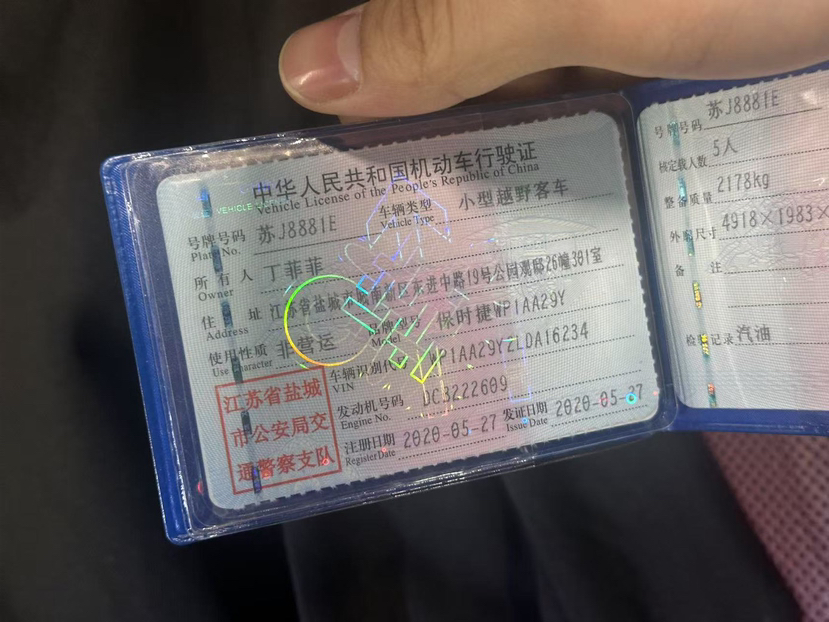 中华人民共和国机动车行驶证
Vehicle License of the People's Republic of China
号牌号码 苏J8881E 车辆类型 小型越野客车
Plate No. Vehicle Type
所有人 丁菲菲
Owner
住址 江苏省盐城 区东进中路19号公园观邸26幢301室
Address
使用性质 非营运 品牌型号 保时捷WP1AA29Y
Use Character Model
车辆识别代 WP1AA29YZLDA16234
VIN
发动机号码 DC3222609
Engine No.
注册日期 2020-05-27 发证日期 2020-05-27
Register Date Issue Date
江苏省盐城
市公安局交
通警察支队
号牌号码 苏J8881E
核定载人数 5人
整备质量 2178kg
外廓尺寸 4918×1983×
备注
检验记录 汽油